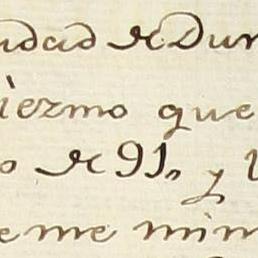 udad de Dur
iezmo que
o de 91,, y l
eme mim